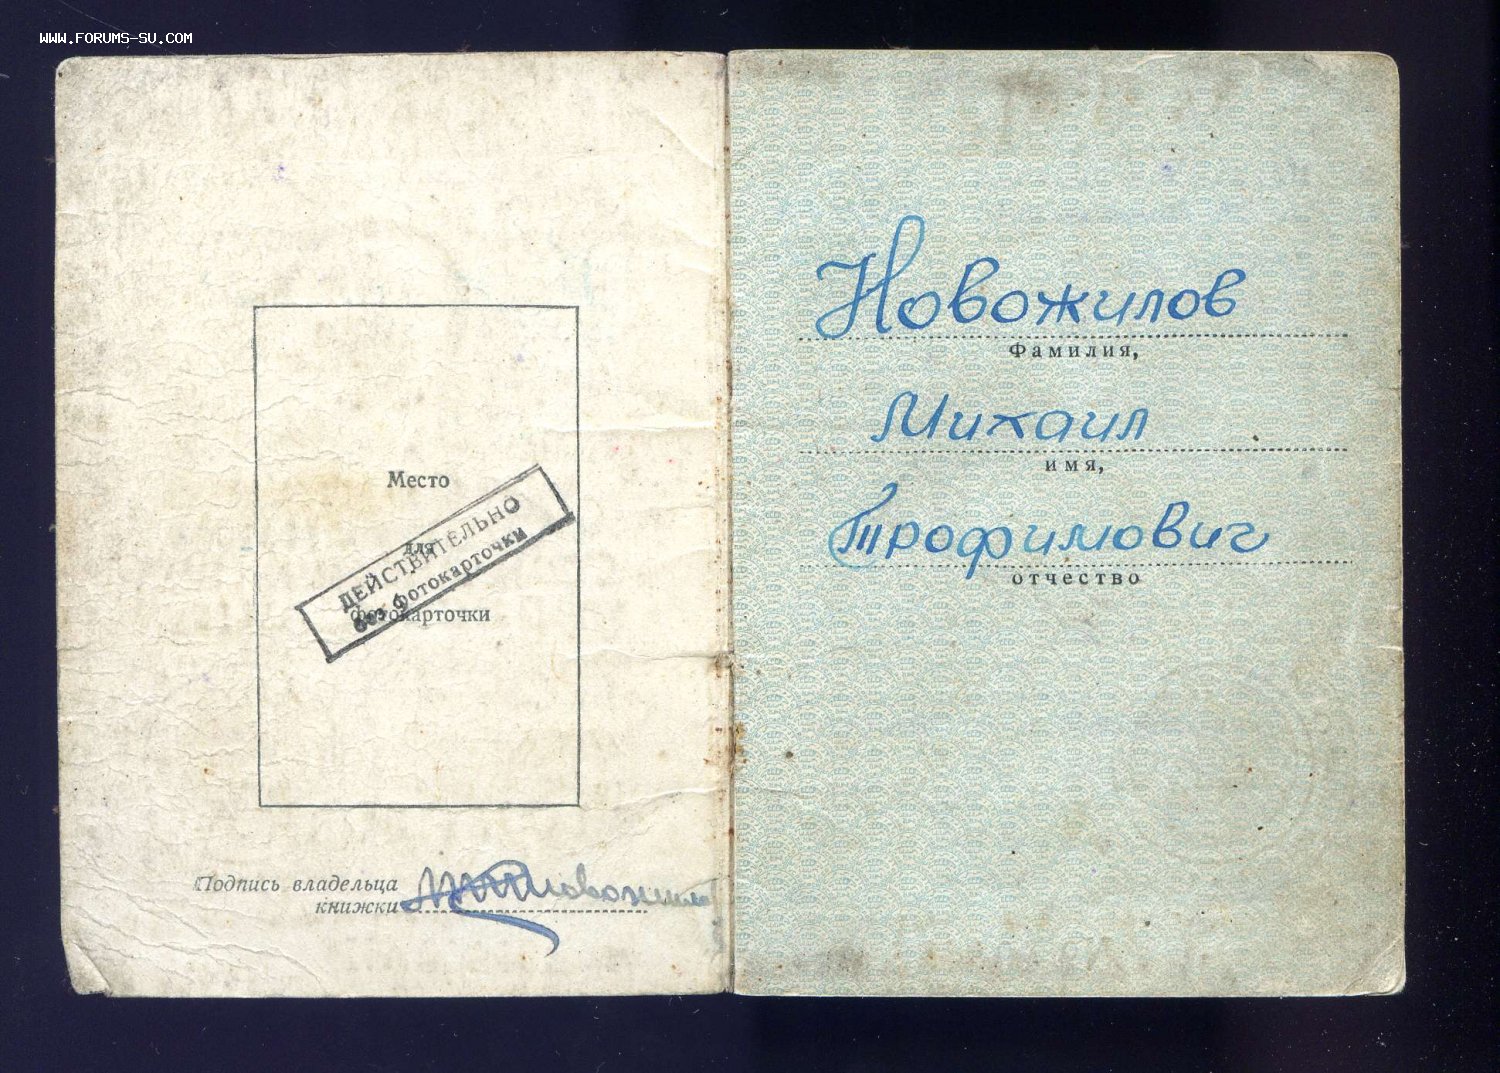 WWW.FORUMS-SU.COM
Место
для
фотокарточки
ДЕЙСТВИТЕЛЬНО
без фотокарточки
Подпись владельца
книжки
Новожилов
Фамилия,
Михаил
имя,
Трофимович
отчество